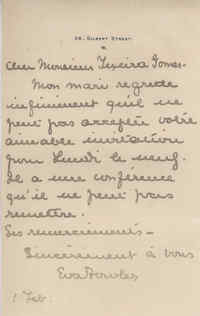 28, Gilbert Street.
W.
Cher Monsieur Teixeira Gomes.
Mon mari regrette
infiniment qu'il ne
peut pas accepter votre
aimable invitation
pour Lundi le neuf.
Il a une conférence
qu'il ne peut pas
remettre.
Ses remerciements –
Sincèrement à vous
1 Feb: